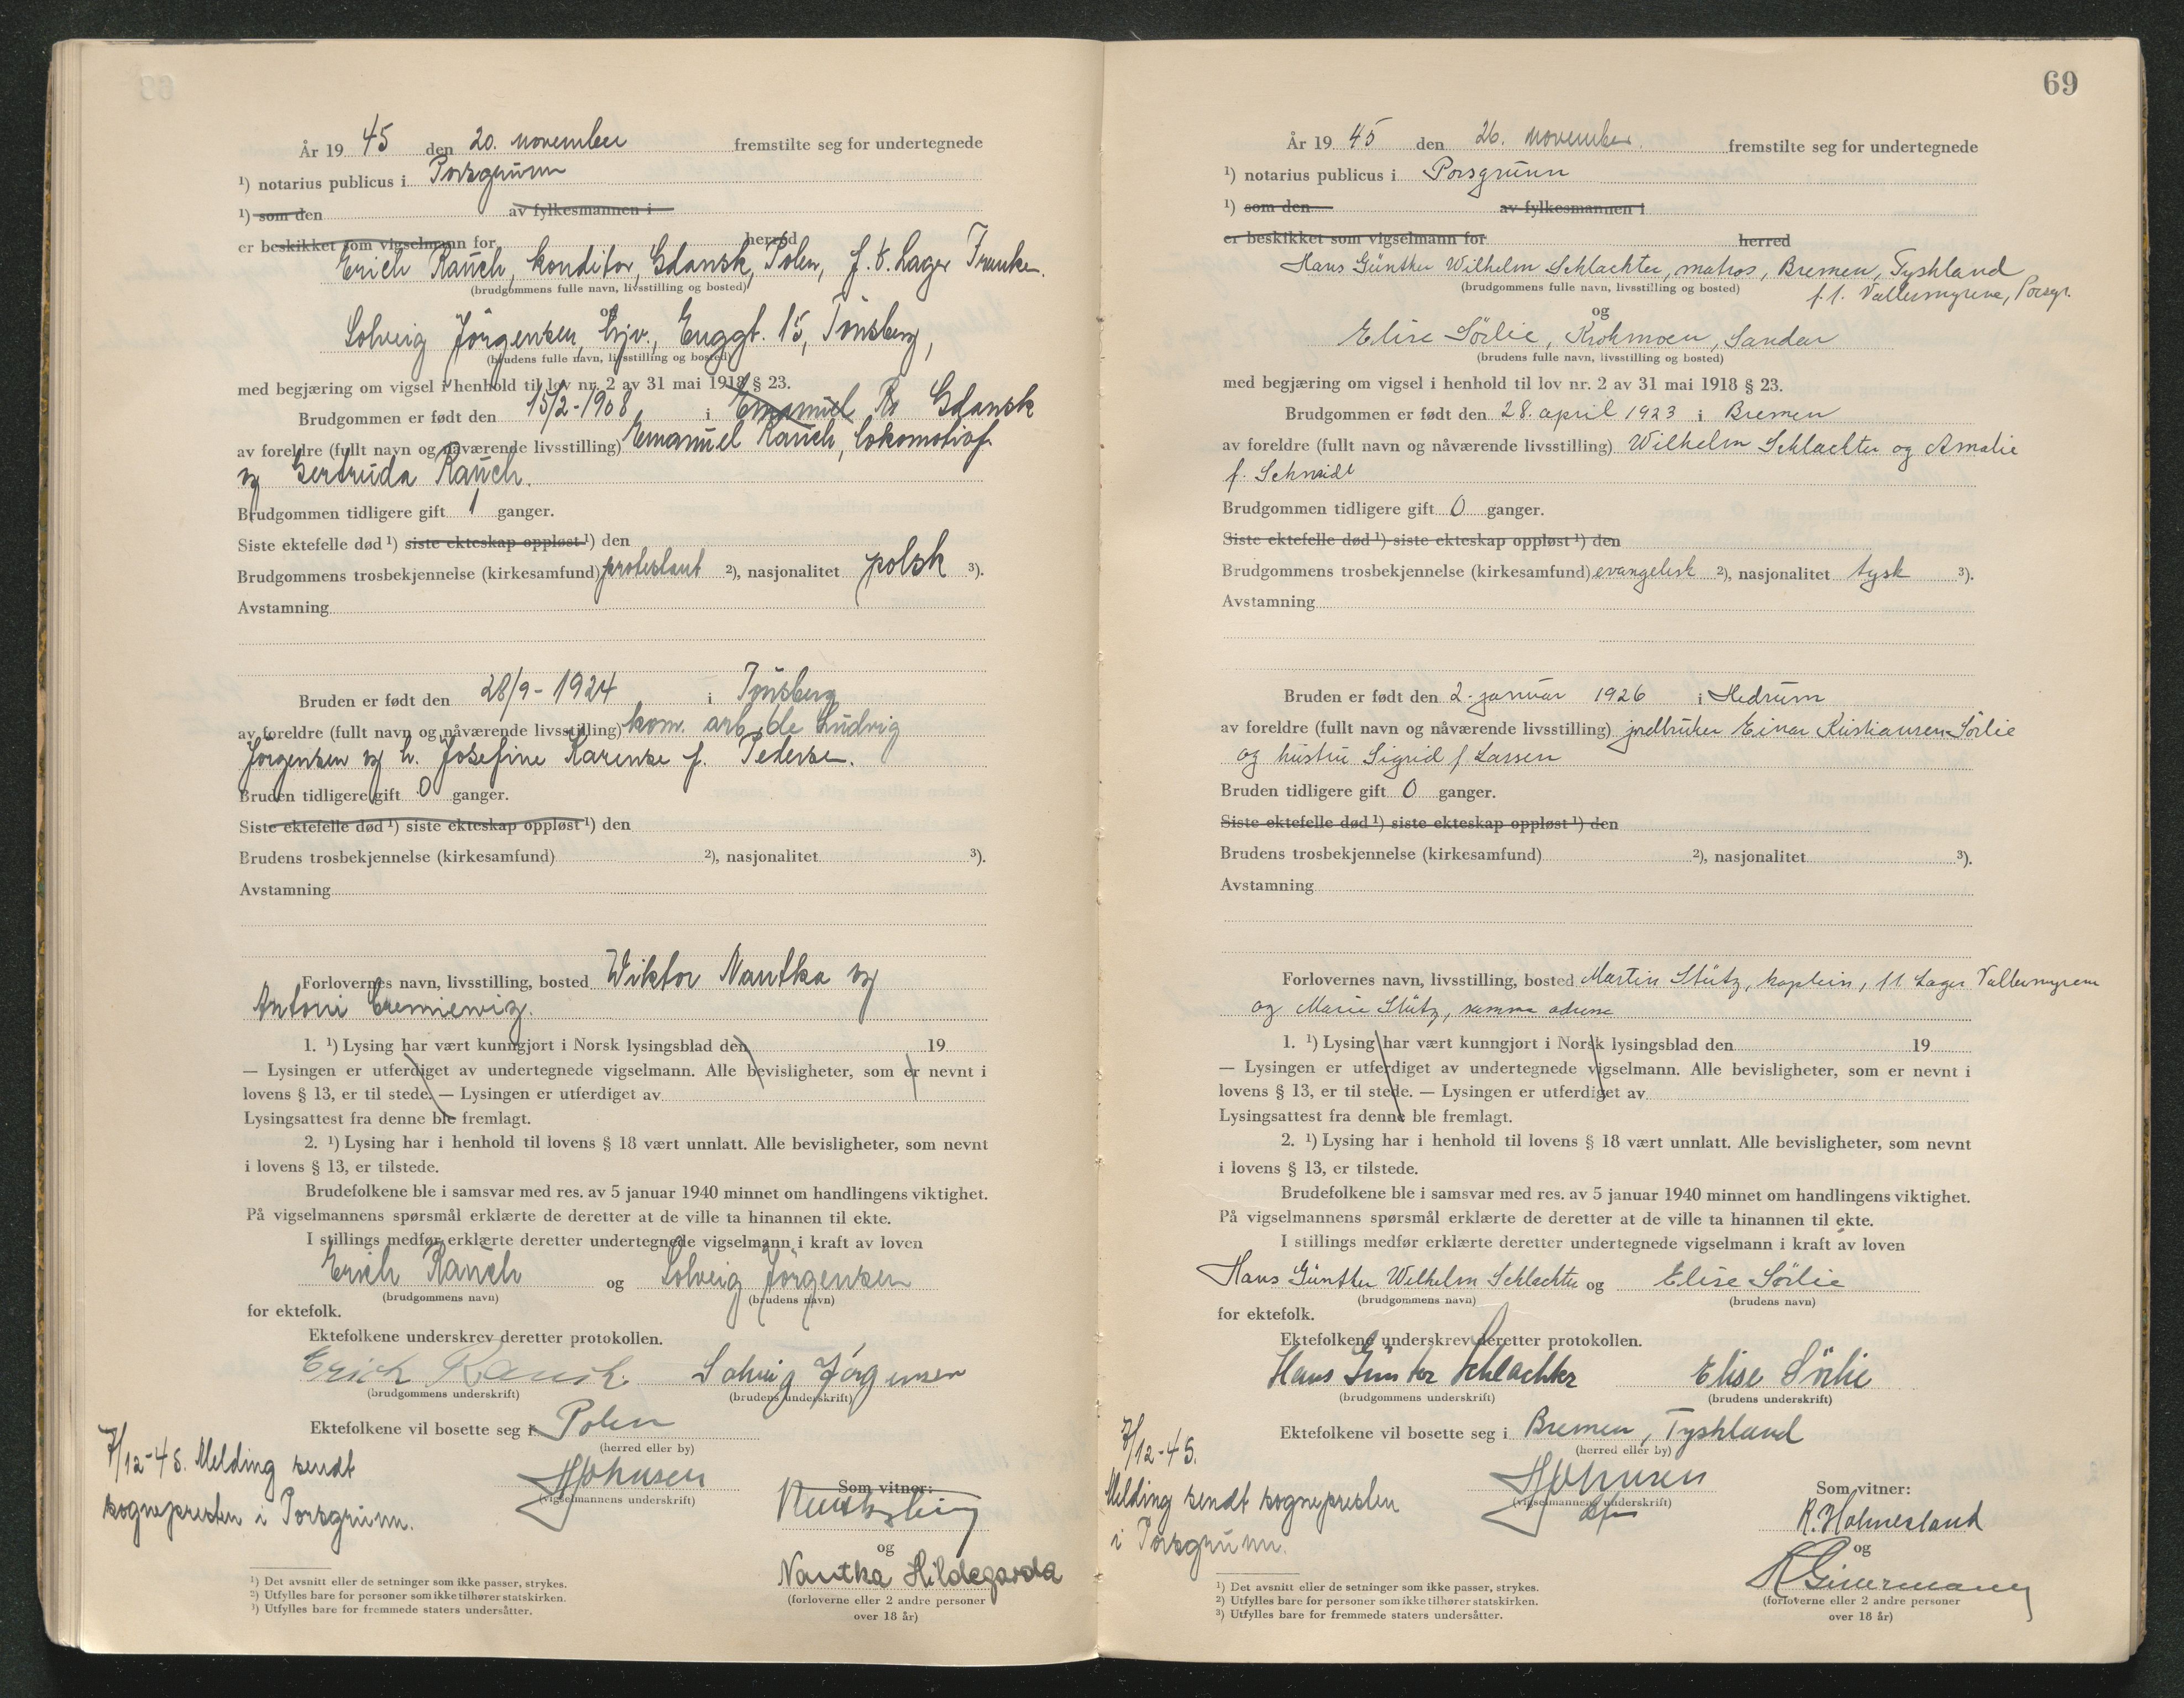 År 19 45 den 20. november fremstilte seg for undertegnede
¹) notarius publicus i Porsgrunn
¹) som den av fylkesmannen i
er beskikket som vigselmann for herred
Erich Rauch, konditor, Gdansk, Polen, f. t. Lager Franken.
(brudgommens fulle navn, livsstilling og bosted)
og
Solveig Jörgensen, hjv., Enggt. 15, Tönsberg,
(brudens fulle navn, livsstilling og bosted)
med begjæring om vigsel i henhold til lov nr. 2 av 31 mai 1918 § 23.
Brudgommen er født den 15/2-1908 i Emanuel Ra Gdansk
av foreldre (fullt navn og nåværende livsstilling) Emanuel Rauch, lokomotivf.
og Gertruda Rauch.
Brudgommen tidligere gift 1 ganger.
Siste ektefelle død ¹) siste ekteskap oppløst ¹) den
Brudgommens trosbekjennelse (kirkesamfund) protestant ²), nasjonalitet polsk ³).
Avstamning
Bruden er født den 28/9-1924 i Tönsberg
av foreldre (fullt navn og nåværende livsstilling) kom. arb.de Ludvig
Jörgensen og h. Josefine Karense f. Pedersen.
Bruden tidligere gift 0 ganger.
Siste ektefelle død ¹) siste ekteskap oppløst ¹) den
Brudens trosbekjennelse (kirkesamfund) ²), nasjonalitet ³).
Avstamning
Forlovernes navn, livsstilling, bosted Wiktor Nautka og
Antoni
1. ¹) Lysing har vært kunngjort i Norsk lysingsblad den 19
— Lysingen er utferdiget av undertegnede vigselmann. Alle bevisligheter, som er nevnt i
lovens § 13, er til stede. — Lysingen er utferdiget av
Lysingsattest fra denne ble fremlagt.
2. ¹) Lysing har i henhold til lovens § 18 vært unnlatt. Alle bevisligheter, som nevnt
i lovens § 13, er tilstede.
Brudefolkene ble i samsvar med res. av 5 januar 1940 minnet om handlingens viktighet.
På vigselmannens spørsmål erklærte de deretter at de ville ta hinannen til ekte.
I stillings medfør erklærte deretter undertegnede vigselmann i kraft av loven
Erich Rauch og Solveig Jörgensen
(brudgommens navn) (brudens navn)
for ektefolk.
Ektefolkene underskrev deretter protokollen.
Erich Rauch. Solveig Jörgensen
(brudgommens underskrift) (brudens underskrift)
Ektefolkene vil bosette seg i Polen
(herred eller by)
7/12-45. Melding sendt
sognepresten i Porsgrunn.
HJohnsen
(vigselmannens underskrift)
Som vitner:
og
Nautka Hildegarda
(forloverne eller 2 andre personer
over 18 år)
¹) Det avsnitt eller de setninger som ikke passer, strykes.
²) Utfylles bare for personer som ikke tilhører statskirken.
³) Utfylles bare for fremmede staters undersåtter.
69
År 19 45 den 26. november. fremstilte seg for undertegnede
¹) notarius publicus i Porsgrunn
¹) som den av fylkesmannen i
er beskikket som vigselmann for herred
Hans Günther Wilhelm Schlachter, matros, Bremen, Tyskland
(brudgommens fulle navn, livsstilling og bosted) f.t. Vallermyrene, Porsgr.
og
Elise Sörlie, Krokmoen, Sandar
(brudens fulle navn, livsstilling og bosted)
med begjæring om vigsel i henhold til lov nr. 2 av 31 mai 1918 § 23.
Brudgommen er født den 28. april 1923 i Bremen
av foreldre (fullt navn og nåværende livsstilling) Wilhelm Schlachter og Amalie
f. Schmidt
Brudgommen tidligere gift 0 ganger.
Siste ektefelle død ¹) siste ekteskap oppløst ¹) den
Brudgommens trosbekjennelse (kirkesamfund) evangelisk ²), nasjonalitet tysk ³).
Avstamning
Bruden er født den 2. januar 1926 i Hedrum
av foreldre (fullt navn og nåværende livsstilling) jordbruker Einar Kristiansen Sörlie
og hustru Sigrid f. Larsen
Bruden tidligere gift 0 ganger.
Siste ektefelle død ¹) siste ekteskap oppløst ¹) den
Brudens trosbekjennelse (kirkesamfund) ²), nasjonalitet ³).
Avstamning
Forlovernes navn, livsstilling, bosted Martin Stütz, kaptein, f.t. Lager Vallermyrene
og Marie Stütz, samme adresse
1. ¹) Lysing har vært kunngjort i Norsk lysingsblad den 19
— Lysingen er utferdiget av undertegnede vigselmann. Alle bevisligheter, som er nevnt i
lovens § 13, er til stede. — Lysingen er utferdiget av
Lysingsattest fra denne ble fremlagt.
2. ¹) Lysing har i henhold til lovens § 18 vært unnlatt. Alle bevisligheter, som nevnt
i lovens § 13, er tilstede.
Brudefolkene ble i samsvar med res. av 5 januar 1940 minnet om handlingens viktighet.
På vigselmannens spørsmål erklærte de deretter at de ville ta hinannen til ekte.
I stillings medfør erklærte deretter undertegnede vigselmann i kraft av loven
Hans Günther Wilhelm Schlachter og Elise Sörlie
(brudgommens navn) (brudens navn)
for ektefolk.
Ektefolkene underskrev deretter protokollen.
Hans Günther Schlachter Elise Sörlie
(brudgommens underskrift) (brudens underskrift)
Ektefolkene vil bosette seg i Bremen, Tyskland
(herred eller by)
7/12-45.
Melding sendt sognepresten
i Porsgrunn.
HJohnsen
(vigselmannens underskrift)
Som vitner:
R. Holmesland
og
(forloverne eller 2 andre personer
over 18 år)
¹) Det avsnitt eller de setninger som ikke passer, strykes.
²) Utfylles bare for personer som ikke tilhører statskirken.
³) Utfylles bare for fremmede staters undersåtter.